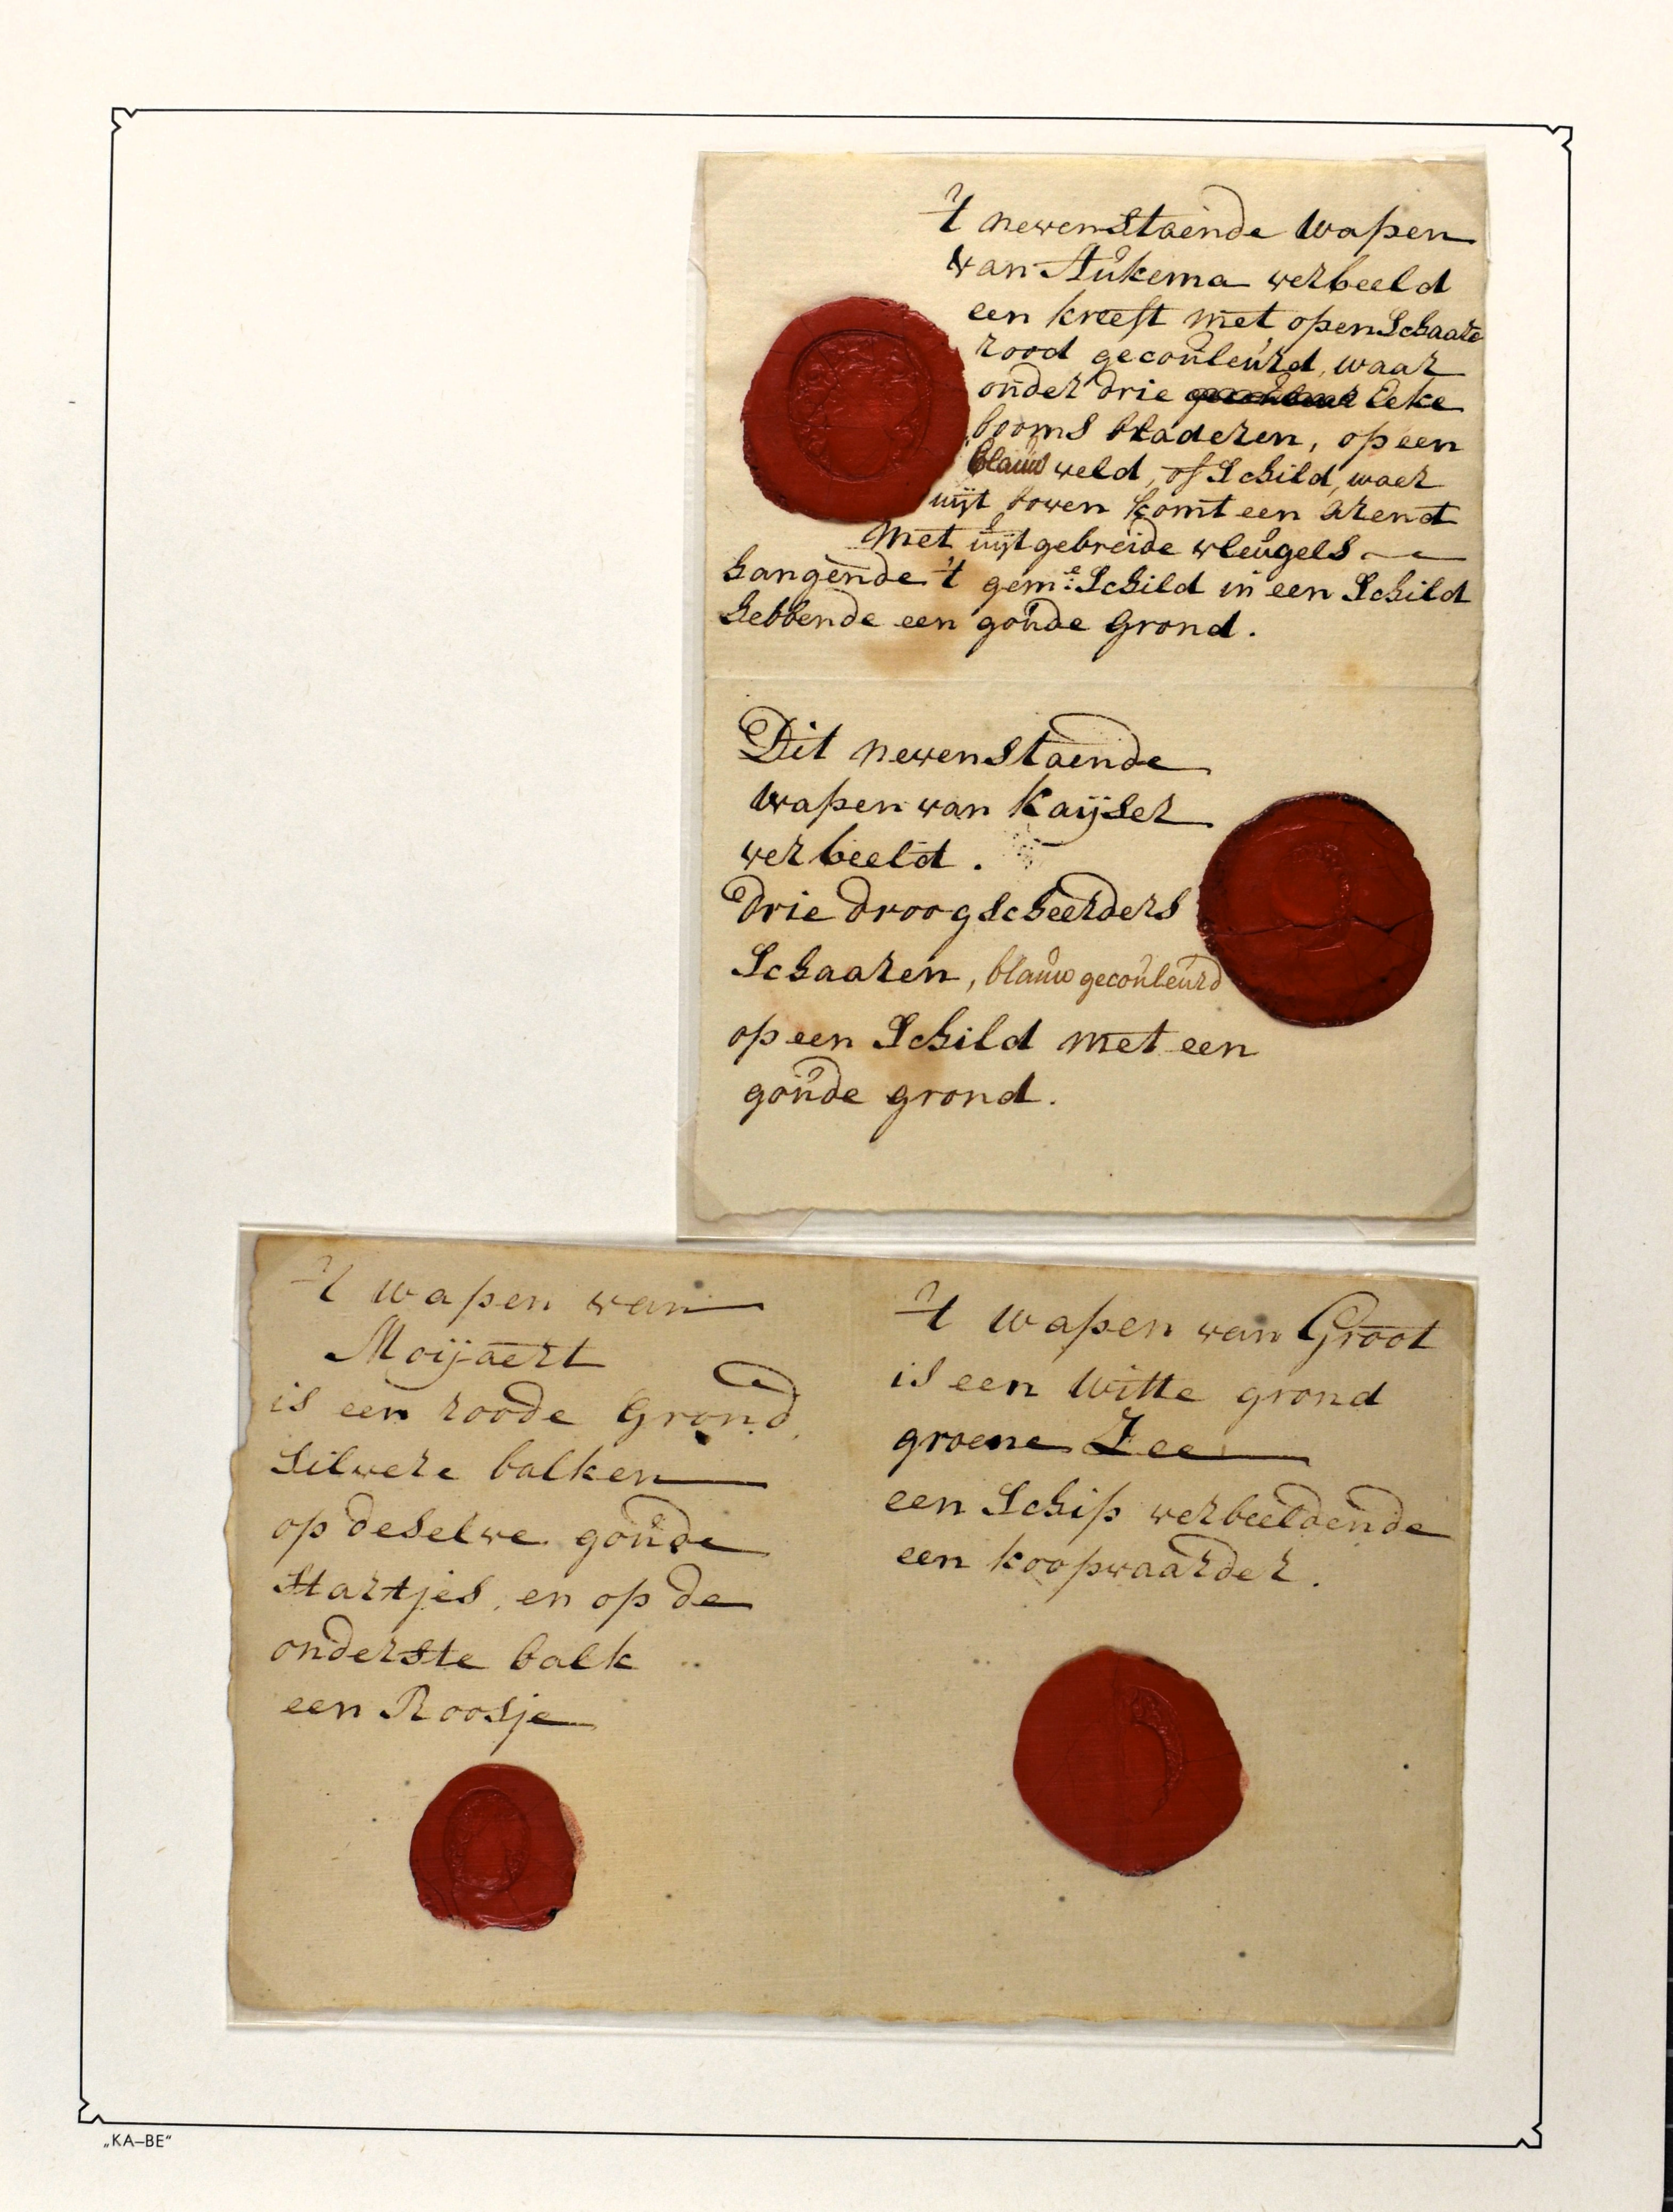 't nevenstaende wapen
van Aukema verbeeld
een kreeft met open Schaare
rood gecouleurd, waar
onder drie Eeke
booms bladeren, op een
blauw veld, of Schild, waer
uijt boven komt een Arend
Met uijtgebreide vleugels
hangende 't gem:e Schild in een Schild
hebbende een goude Grond.
Dit nevenstaende
wapen van Kaijser
verbeeld.
Drie droogscheerders
Schaaren, blauw gecouleurd
op een Schild met een
goude grond.
't wapen van
Moijaert
is een roode Grond,
Silvere balken
op deselve goude
Hartjes, en op de
onderste balk
een Roosje
't wapen van Groot
is een Witte grond
groene Zee
een Schip verbeeldende
een koopvaarder.
„KA–BE“